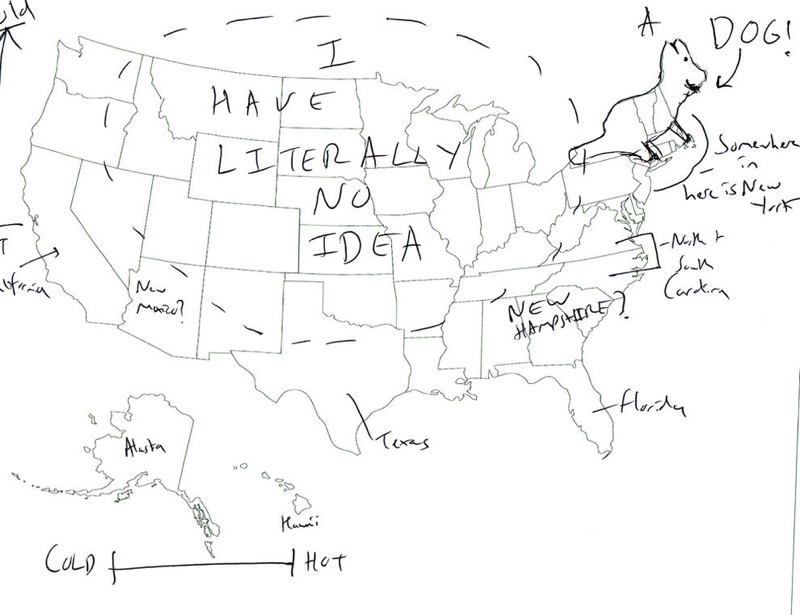 old
I
HAVE
LITERALLY
NO
IDEA
A
DOG!
Somewhere
in
here is New
York
North +
South
Carolina
lifornia
New
Mexico?
NEW
HAMPSHIRE?
Florida
Texas
Alaska
Hawaii
COLD
HOT